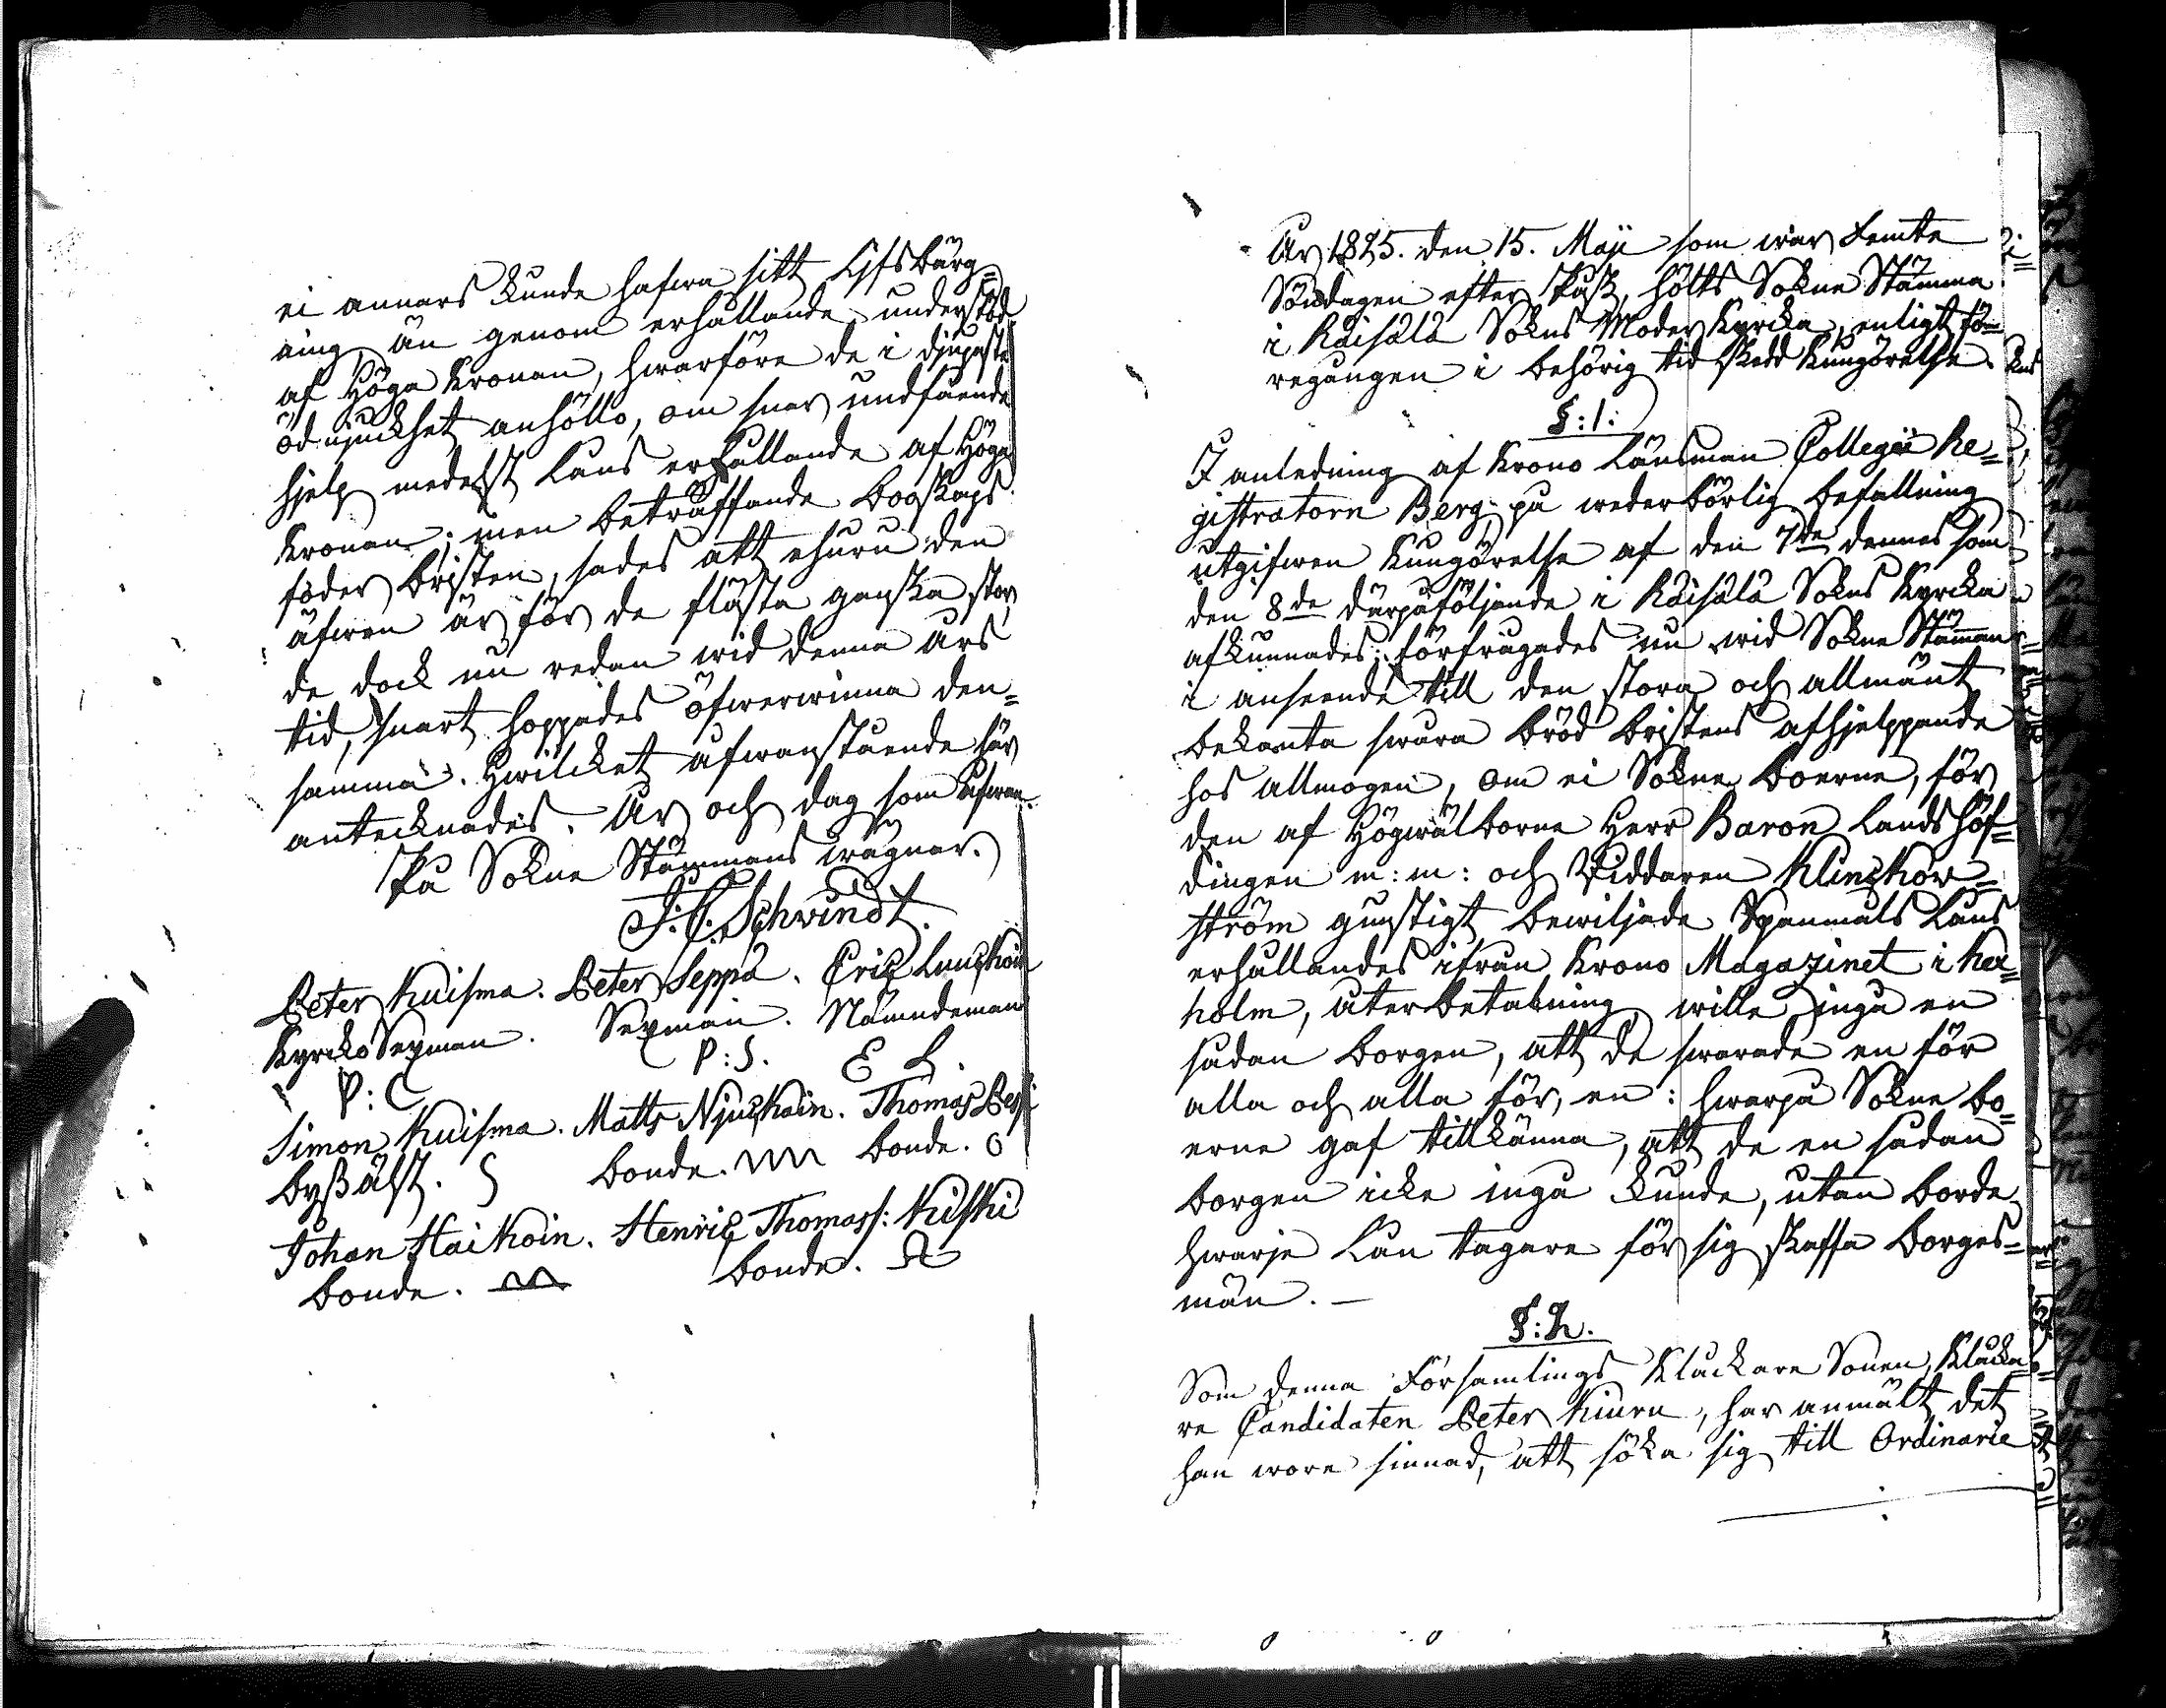 ei annars kunde hafwa sitt Lifsbärg=
ning, än genom erhållande understöd
af Höga Kronan, hwarföre de i djupaste
ödmjukhet anhöllo, om snar undfående
hjelp medelst Låns erhållande af Höga
Kronan; men beträffande Boskaps
foder bristen, sades att ehuru den
äfwen är för de flästa ganska stor,
de dock nu redan wid denna års
tid, snart hoppades öfwerwinna den=
samma. Hwilcket ofwanstående här
antecknades. År och dag som ofwan.
På Sokne Stämmans wägnar.
J: C: Schwindt.
Peter Kuisma. Peter Seppä. Eric
Kyrcko Sexman. Sexman. Nämndeman
P: C P: S. E L.
Simon Kuisma. Matts Njuskain. Thomas
byßälst. S bonde. bonde. O
Johan Haikoin. Henric Thomass: Kiski
bonde. bonde.
År 1825. den 15. Maji som war Femte
Söndagen efter Påsk, hölts Sokne Stämma
i Räisälä Sokns Moder Kyrcka, enligt fö=
regången i behörig tid skedd Kungörelse.
§: 1:
I anledning af Krono Länsman Collegii Re=
gistratorn Berg på wederbörlig befallning
utgifwen Kungörelse af den 7de dennes som
den 8de därpåföljande i Räisälä Sokns Kyrcka
afkunnades; förfrågades nu wid Sokne Stämman
i anseende till den stora och allmänt
bekanta swåra Bröd bristens afhjelppande
hos allmogen, om ei Sokne boerne, för
den af Högwälborne Herr Baron Landshöf=
dingen m: m: och Riddaren Klinckow=
ström gunstigt bewiljade Spanmåls Låns
erhållandes ifrån Krono Magazinet i Kex=
holm, återbetalning, wille ingå en
sådan borgen, att de swarade en för
alla och alla för en: hwarpå Sokne bo=
erne gaf tillkänna, att de en sådan
borgen icke ingå kunde, utan borde
hwarje Lån tagare för sig skaffa borges=
män. —
§: 2.
Som denna Församlings Kluckare Sonen, Klucka=
re Candidaten Peter Kiuru, har anmält det
han wore sinnad, att söka sig till Ordinarie